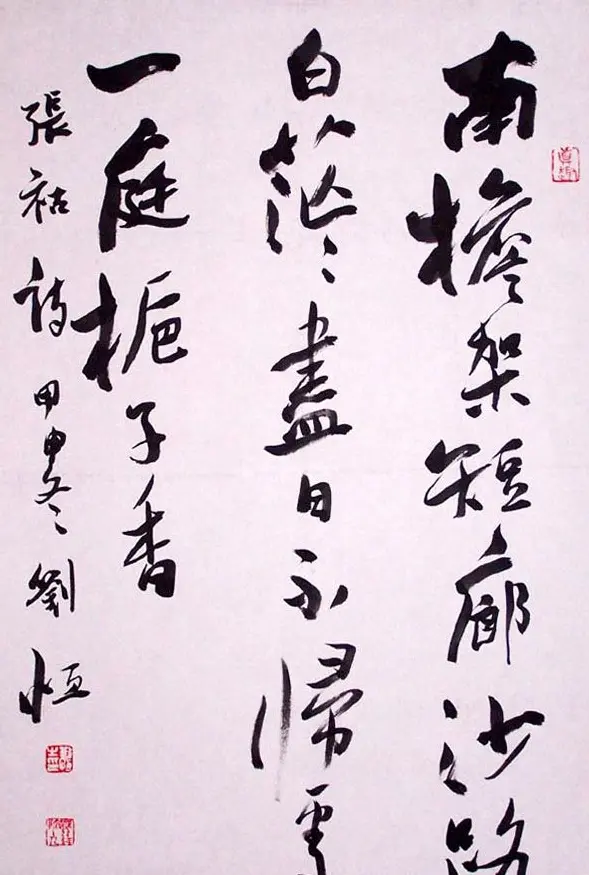 南檐架短廊沙路
白茫〻盡日不歸處
一庭梔子香
張祜詩甲申冬劉恒